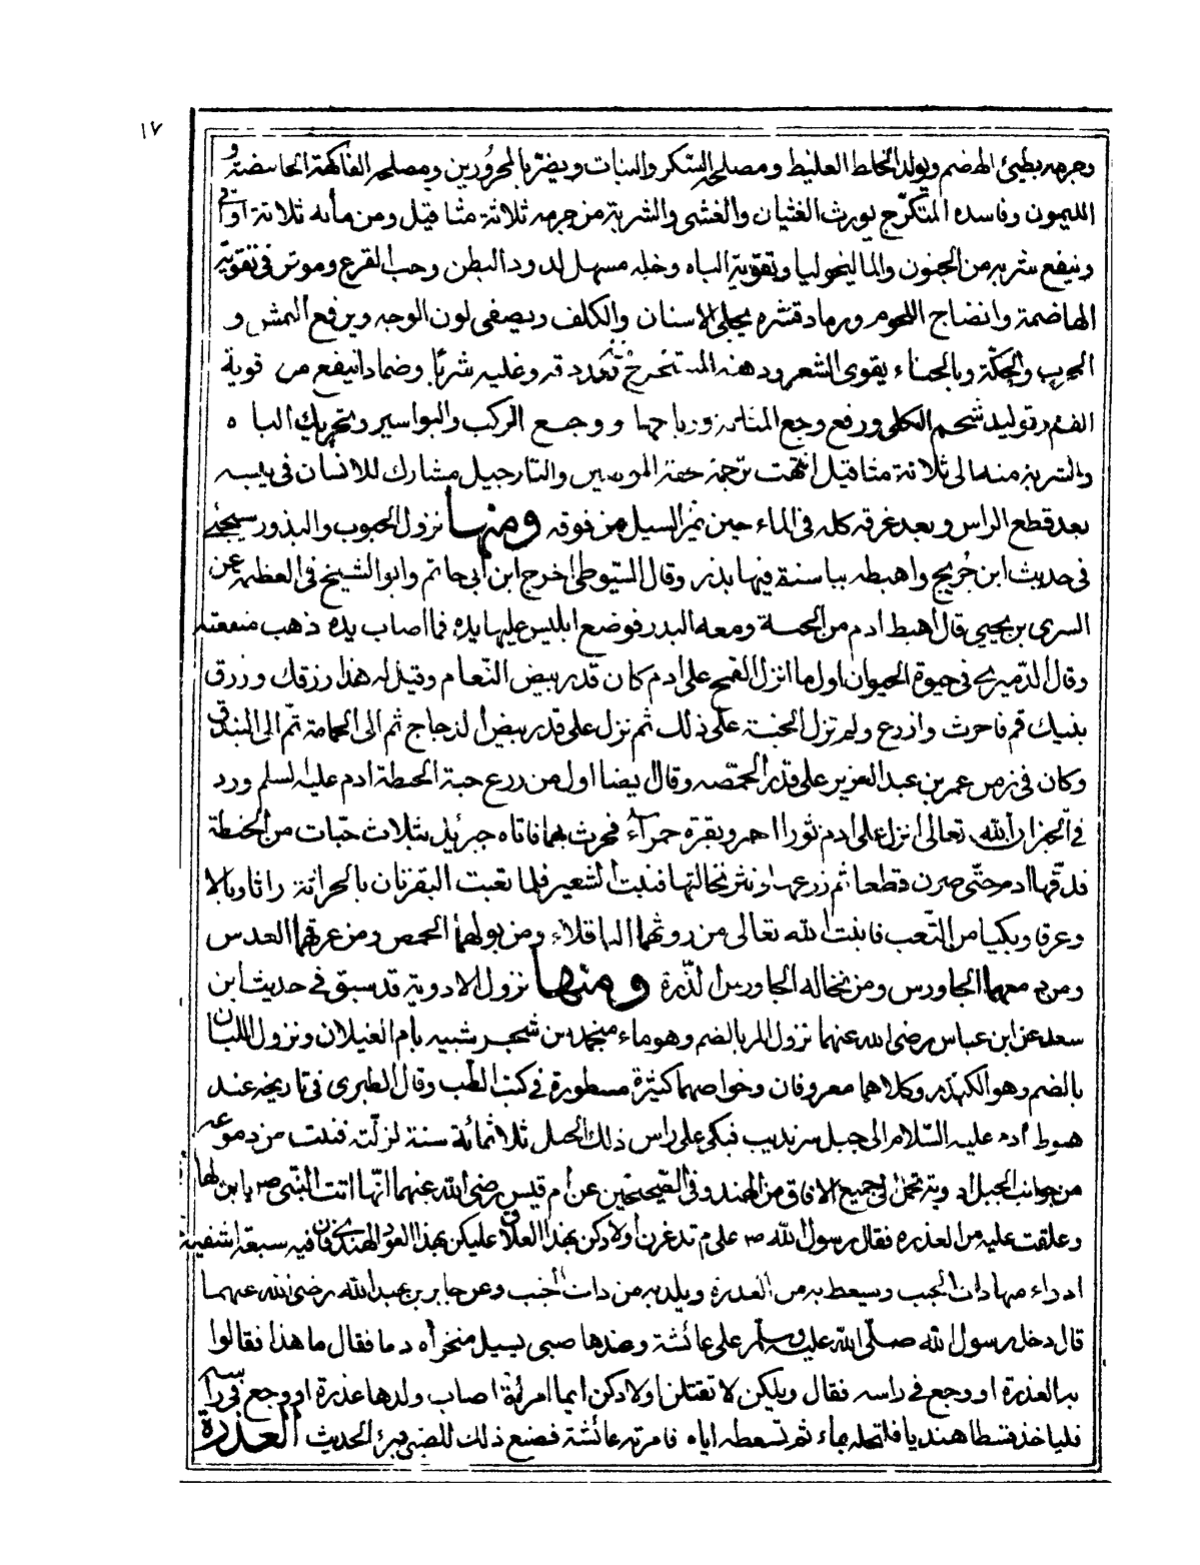 ١٧
وجرمه بطيئ الهضم ويولد الخلط الغليظ ومصلحه السكر والنبات ويضر بالمحرُورين ومصلحه الفاكهة الحامضة و
الليمون وفاسده المتكرّج يورث الغثيان والغشى والشربة من جرمه ثلاثة مثاقيل ومن مائه ثلاثة اواقى
وينفع شربه من الجنون والماليخوليا وتقوية الباه وخله مسهل لدود البطن وحب القرع وموثر فى تقوية
الهاضمة وانضاج اللحوم ورماد قشره يجلى الاسنان والكلف ويصفى لون الوجه ويرفع النمش و
الجرب والحكّة وبالحناء يقوى الشعر ودهنه المستخرج شربًا وضمادا ينفع من
الفم وتوليد شحم الكلى ورفع وجع المثانة ورياحها ووجع الركب والبواسير وتحريك الباه
والشربة منه الى ثلاثة مثاقيل انتهت ترجمة تحفة المومنين والنارجيل مشارك للانسان فى يبسه
بعد قطع الراس وبعد غرقه كله فى الماء حين يمر السيل من فوقه ومنها نزول الحبوب والبذور سيجئ
فى حديث ابن جُريج واهبطه بباسنة فيها بذر وقال السّيوطى اخرج ابن ابى حاتم وابو الشيخ فى العظمة عن
السرى بن يحيى قال اهبط ادم من الجنة ومعه البذر فوضع ابليس عليها يده فما اصاب يده ذهب منفعته
وقال الدّميرى فى حيوة الحيوان اول ما انزل القمح على ادم كان قدر بيض النّعام وقيل له هذا رزقك ورزق
بنيك قم فاحرث وازرع ولم تزل الحبة على ذلك ثم نزل على قدر بيض الدجاج ثم الى الحمامة ثمّ الى البندق
وكان فى زمن عمر بن عبد العزيز على قدر الحمّصه وقال ايضا اول من زرع حبة الحنطة ادم عليه السلم ورد
فى الخبر ان الله تعالى انزل على ادم ثورا احمر وبقرة حمرآء فحرث بهما فاتاه جبرئيل بثلاث حبّات من الحنطة
فدقّها ادم حتّى صرن قطعا ثم زرعها ونثر نخالتها فنبت الشعير فلما تعبت البقرتان بالحراثة راثا وبالا
وعرقا وبكيا من التّعب فانبت الله تعالى من روثهما الباقلاء ومن بولهما الحمص ومن عرقهما العدس
ومن دمعهما الجاورس ومن نخاله الجاورس الذّرة ومنها نزول الادوية قد سبق فى حديث ابن
سعد عن ابن عباس رضى الله عنهما نزول المر بالضم وهو ماء منجمد من شجر شبيه بأم الغيلان ونزول اللبان
بالضم وهو الكندر وكلاهما معروفان وخواصهما كثيرة مسطورة فى كتب الطب وقال الطبرى فى تاريخه عند
هبوط ادم عليه السّلام الى جبل سرنديب فبكى على راس ذلك الجبل ثلاثمائة سنة لزلّته فنبت من دموعه
من جوانب الجبل ادوية تحمل الى جميع الافاق من الهند وفى الصّحيحين عن أم قيس رضى الله عنهما انّها اتت النّبى ص بابن لها
وعلقت عليه من العذره فقال رسول الله ص على م تدغرن أولادكن بهذا العلاق عليكن بهذا العود الهندى فان فيه سبعة اشفية
ادواء منها ذات الجنب ويسعط به من العذرة ويلد به من ذات الجنب وعن جابر بن عبد الله رضى الله عنهما
قال دخل رسول الله صلّى الله عليه وسلّم على عائشة وعندها صبى يسيل منخراه دما فقال ما هذا فقالوا
به العذرة او وجع فى راسه فقال ويلكن لا تقتلن اولادكن ايما امرئة اصاب ولدها عذرة او وجع فى راسه
فلياخذ قسطا هنديا فلتحله بماء ثم تسعطه اياه فامرته عائشة فصنع ذلك للصبى فبرئ الحديث العذرة